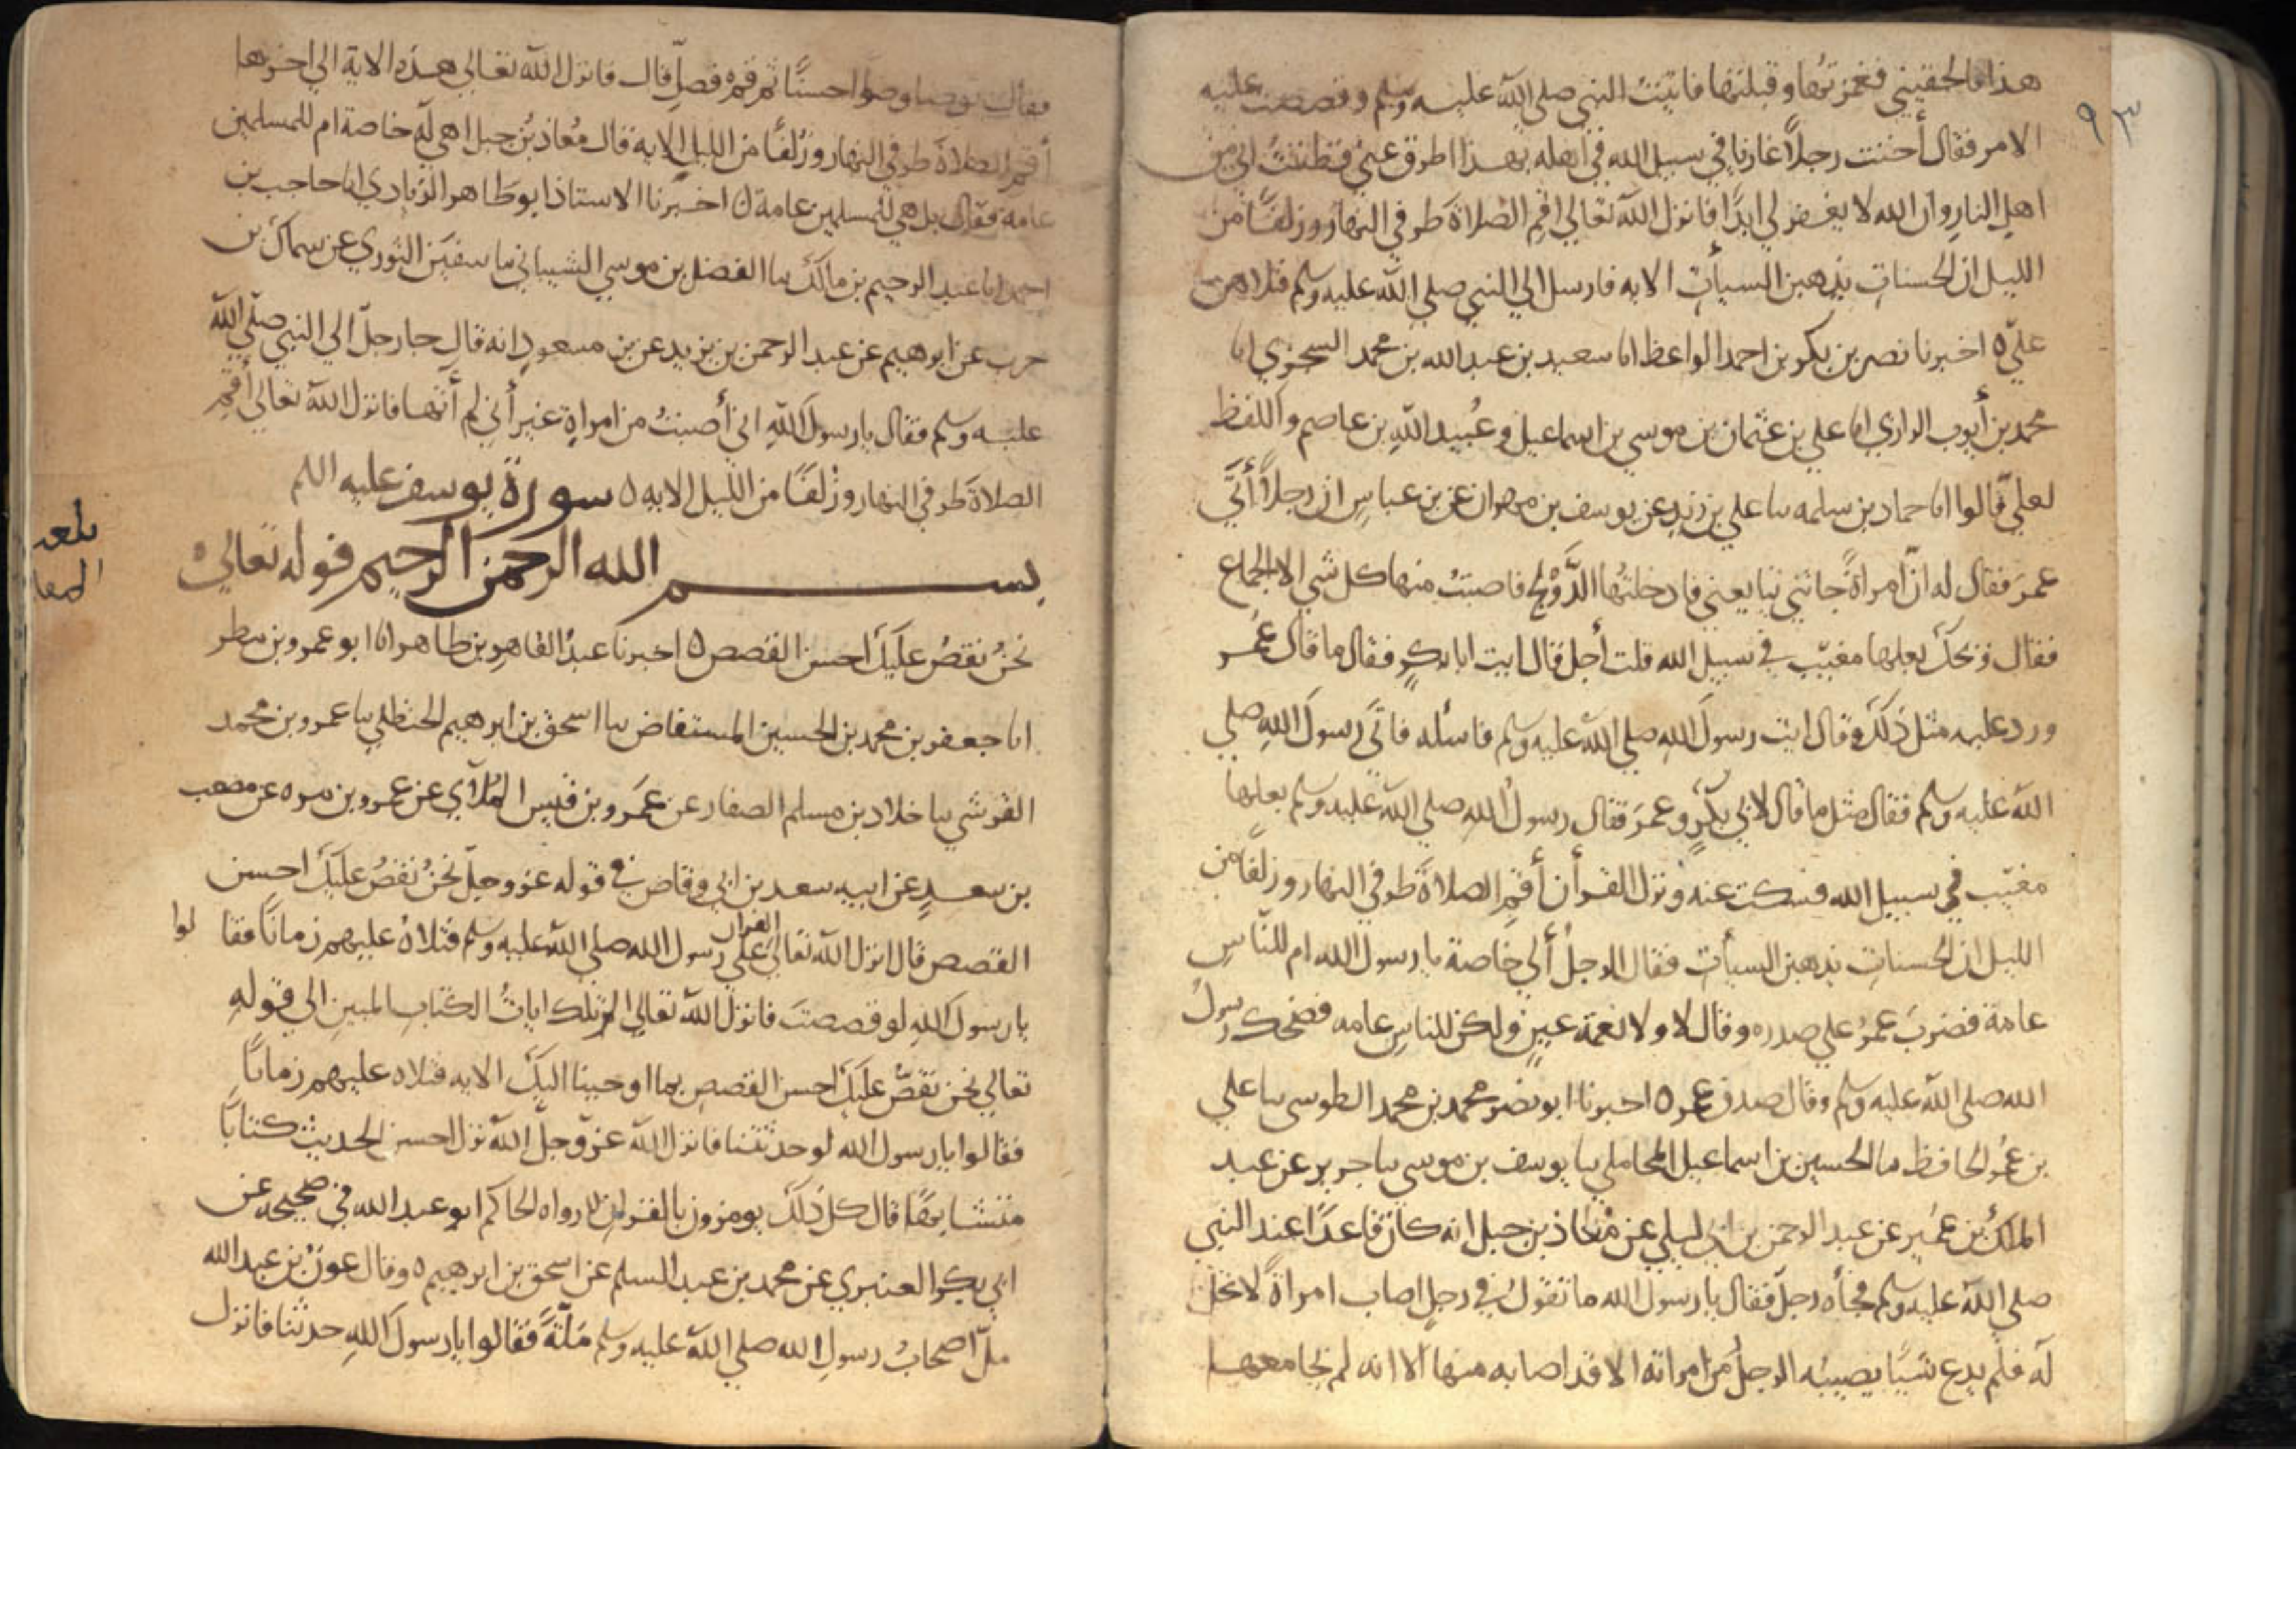 ٩٣
هذا فالحقيني فغمزتها وقبلتها فاتيت النبي صلى الله عليه وسلم وقصصت عليه
الامر فقال أخنت رجلاً غازيا في سبيل الله في اهله بهذا اطرق عني فظننت اني من
اهل النار وان الله لا يغفر لي ابدًا فانزل الله تعالي اقم الصلاة طرفي النهار وزلفًا من
الليل ان الحسنات يذهبن السيأت الايه فارسل الي النبي صلي الله عليه وسلم فتلاهن
عليّ ٥ اخبرنا نصر بن بكر بن احمد الواعظ انا سعيد بن عبد الله بن محمد السجزي انا
محمد بن أيوب الرازي انا علي بن عثمان بن موسي بن اسماعيل وعُبيد الله بن عاصم واللفظ
لعلي قالوا انا حماد بن سلمه سا علي بن زيد عن يوسف بن مهران عن بن عباسٍ ان رجلاً أتَي
عمرَ فقال له انّ امراةً جاتني تبايعني فادخلتُها الدَّوْلج فاصبتُ منها كل شي الا الجماع
فقال ويحكَ بعلها مغيّب في سبيل الله قلت أجل قال ايت ابا بكرٍ فقال ما قال عمر
ورد عليه مثل ذلكَ وقال ايت رسولَ الله صلي الله عليه وسلم فاسئله فاتَي رسولَ اللهِ صلي
الله عليه وسلم فقال مثل ما قال لابي بكرٍ وعمرَ فقال رسولُ الله صلي الله عليه وسلم بعلها
مغيّب في سبيل الله فسكت عنه ونزل القرأن أقمِ الصلاةَ طرفي النهار وزلفًا من
الليل ان الحسناتِ يذهبن السيأتِ فقال الرجلُ ألي خاصة يا رسول الله ام للنّاسِ
عامة فضربَ عمرُ علي صدره وقال لا ولا نعمة عينٍ ولكن للناسِ عامه فضحك رسولُ
الله صلي الله عليه وسلم وقال صدق عمر ٥ اخبرنا ابو نصر محمد بن محمد الطوسي سا علي
بن عُمر الحافظ سا الحسين بن اسماعيل المحاملي سا يوسف بن موسي سا جرير عن عبد
الملك بن عمَير عن عبد الرحمن بن ابي ليلي عن مُعاذ بن جبل انه كان قاعدًا عند النبي
صلي الله عليه وسلم فجأه رجلٌ فقال يا رسول الله ما تقولُ في رجلٍ اصاب امراةً لا تحل
له فلم يدع شيًا يصيبُه الرجلُ من امراته الا قد اصابه منها الا انه لم يجامعها
فقال توضا وضوا حسنًا ثم قم فصلِّ قال فانزل الله تعالي هذه الاية الي اخرها
أقم الصلاةَ طرفي النهار وزُلفًا من الليلِ الايه فقال مُعاذ بُن جبل اهي له خاصة ام للمسلمين
عامة فقال بل هي للمسلمين عامة ٥ اخبرنا الاستاذ ابو طاهر الزيادي انا حاجب بن
احمد انا عبد الرحيم بن مالك سا الفضل بن موسي الشيباني سا سفيَن الثوري عن سماك بن
حرب عن ابرهيم عن عبد الرحمن بن يزيد عن بن مسعودٍ انه قال جا رجلٌ الي النبي صلّي الله
عليه وسلم فقال يا رسول اللهِ اني أصبتُ من امراةٍ غير أني لم أتها فانزل اللهُ تعالي أقم
الصلاةَ طرفي النهار وزُلفًا من الليل الايه ٥ سورة يوسف عليه السلم
بسم الله الرحمن الرحيم قوله تعالي
نحنُ نقصُ عليكَ احسن القصص ٥ اخبرنا عبدُ القاهرِ بن طاهر انا ابو عمرو بن مطر
انا جعفر بن محمد بن الحسين المستفاض سا اسحق بن ابرهيم الحنظلي سا عمرو بن محمد
القرشي سا خلاد بن مسلم الصفار عن عمَرو بن قيس المُلآي عن عمرو بن مره عن مصعب
بن سعدٍ عن ابيه سعد بن ابي وقاص في قوله عز وجلّ نحنُ نقصُ عليكَ احسن
القصص قال انزل الله تعالي القران علي رسول الله صلي الله عليه وسلم فتلاهُ عليهم زمانًا فقالوا
يا رسولَ اللهِ لو قصصتَ فانزل الله تعالي الر تلك اياتُ الكتابِ المبينِ الي قولهِ
تعالي نحن نقصّ عليكَ احسن القصصِ بما اوحينا اليكَ الايه فتلاه عليهم زمانًا
فقالوا يا رسول الله لو حدثتنا فانزل الله عز وجلّ الله نزل احسن الحديث كتابًا
متشابهًا قال كل ذلكَ يومرون بالقران رواه الحاكم ابو عبد الله في صحيحه عن
ابي بكر العنبري عن محمد بن عبد السلم عن اسحق بن ابرهيم ٥ وقال عونُ بن عبد الله
ملّ اصحابُ رسولِ الله صلي الله عليه وسلم مَلّةً فقالوا يا رسولَ اللهِ حدثنا فانزل